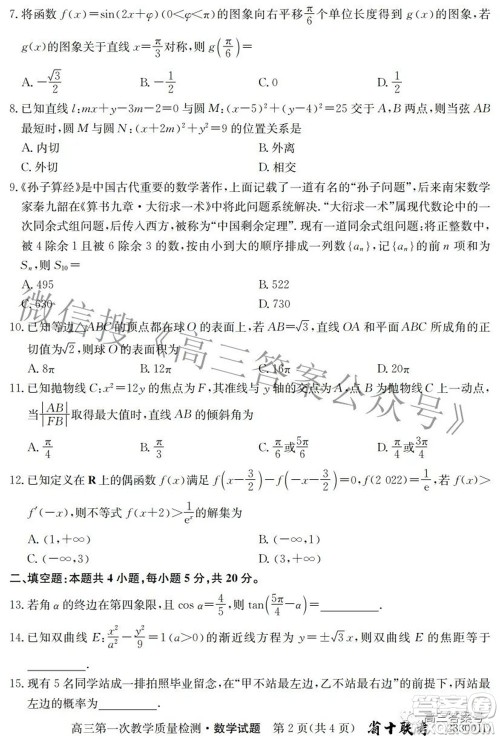 7.将函数 f(x)=sin(2x+φ)(0<φ<π)的图象向右平移π/6个单位长度得到 g(x)的图象,若
g(x)的图象关于直线 x=π/3对称,则 g(π/6)=
A.-√3/2 B.-1/2 C.0 D.1/2
8.已知直线 l:mx+y-3m-2=0 与圆 M:(x-5)²+(y-4)²=25 交于 A,B 两点,则当弦 AB
最短时,圆 M 与圆 N:(x+2m)²+y²=9 的位置关系是
A.内切 B.外离
C.外切 D.相交
9.《孙子算经》是中国古代重要的数学著作,上面记载了一道有名的“孙子问题”,后来南宋数学
家秦九韶在《算书九章·大衍求一术》中将此问题系统解决.“大衍求一术”属现代数论中的一
次同余式组问题,后传入西方,被称为“中国剩余定理”.现有一道同余式组问题:将正整数中,
被 4 除余 1 且被 6 除余 3 的数,按由小到大的顺序排成一列数{aₙ},记{aₙ}的前 n 项和为
Sₙ,则 S₁₀=
A.495 B.522
C.630 D.730
10.已知等边△ABC 的顶点都在球 O 的表面上,若 AB=√3,直线 OA 和平面 ABC 所成角的正
切值为√2,则球 O 的表面积为
A.8π B.12π C.16π D.20π
11.已知抛物线 C:x²=12y 的焦点为 F,其准线与 y 轴的交点为 A,点 B 为抛物线 C 上一动点,
当|AB|/|FB|取得最大值时,直线 AB 的倾斜角为
A.π/4 B.π/3 C.π/6或5π/6 D.π/4或3π/4
12.已知定义在 R 上的偶函数 f(x)满足 f(x-3/2)-f(-x-3/2)=0,f(2 022)=1/e,若 f(x)>
f′(-x),则不等式 f(x+2)>1/eˣ的解集为
A.(1,+∞) B.(-∞,1)
C.(-∞,3) D.(3,+∞)
二、填空题:本题共 4 小题,每小题 5 分,共 20 分。
13.若角 α 的终边在第四象限,且 cos α=4/5,则 tan(5π/4-α)=________.
14.已知双曲线 E:x²/a²-y²/9=1(a>0)的渐近线方程为 y=±√3x,则双曲线 E 的焦距等于
________.
15.现有 5 名同学站成一排拍照毕业留念,在“甲不站最左边,乙站在最右边”的前提下,丙站最
左边的概率为________.
高三第一次教学质量检测·数学试题 第 2 页(共 4 页) 省十联考
微信搜《高三答案公众号》